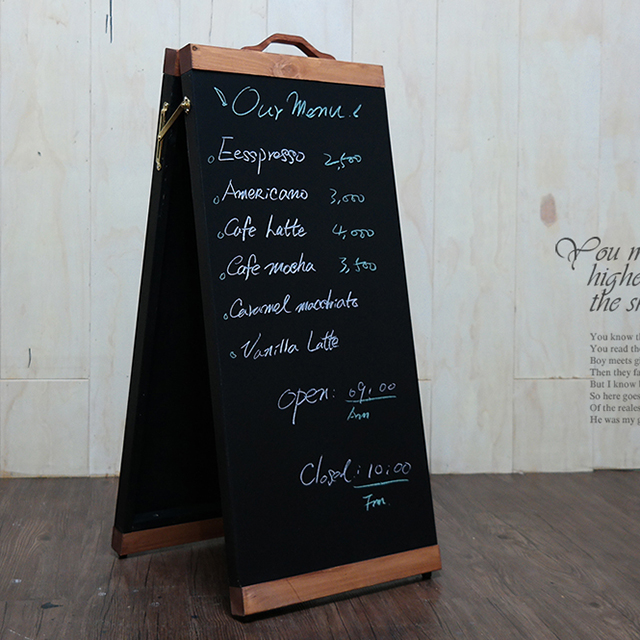 Our Menu
Eesspresso 2,500
Americano 3,000
Cafe Latte 4,000
Cafe mocha 3,500
Caramel macchiato
Vanilla Latte
Open: 09:00
Am
Closed: 10:00
Pm
You m
highe
the s
You know th
You read the
Boy meets gi
Then they fa
But I know
So here goes
Of the reales
He was my g